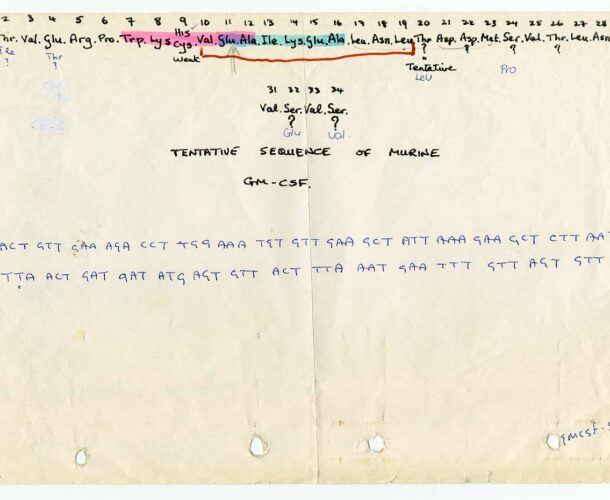 2 3 4 5 6 7 8 9 10 11 12 13 14 15 16 17 18 19 20 21 22 23 24 25 26 27 28
His
Thr. Val. Glu. Arg. Pro. Trp. Lys Cys. Val. Glu. Ala. Ile. Lys. Glu. Ala. Leu. Asn. Leu Thr Asp. Asp. Met. Ser. Val. Thr. Leu. Asn
? ? ? ?
Ile Thr Weak Tentative
? ? Leu Pro
31 32 33 34
Val. Ser. Val. Ser.
? ?
Glu Val.
TENTATIVE SEQUENCE OF MURINE
GM-CSF.
ACT GTT GAA AGA CCT TGG AAA TGT GTT GAA GCT ATT AAA GAA GCT CTT AAT
TTA ACT GAT GAT ATG AGT GTT ACT TTA AAT GAA TTT GTT AGT GTT
gmcsf.